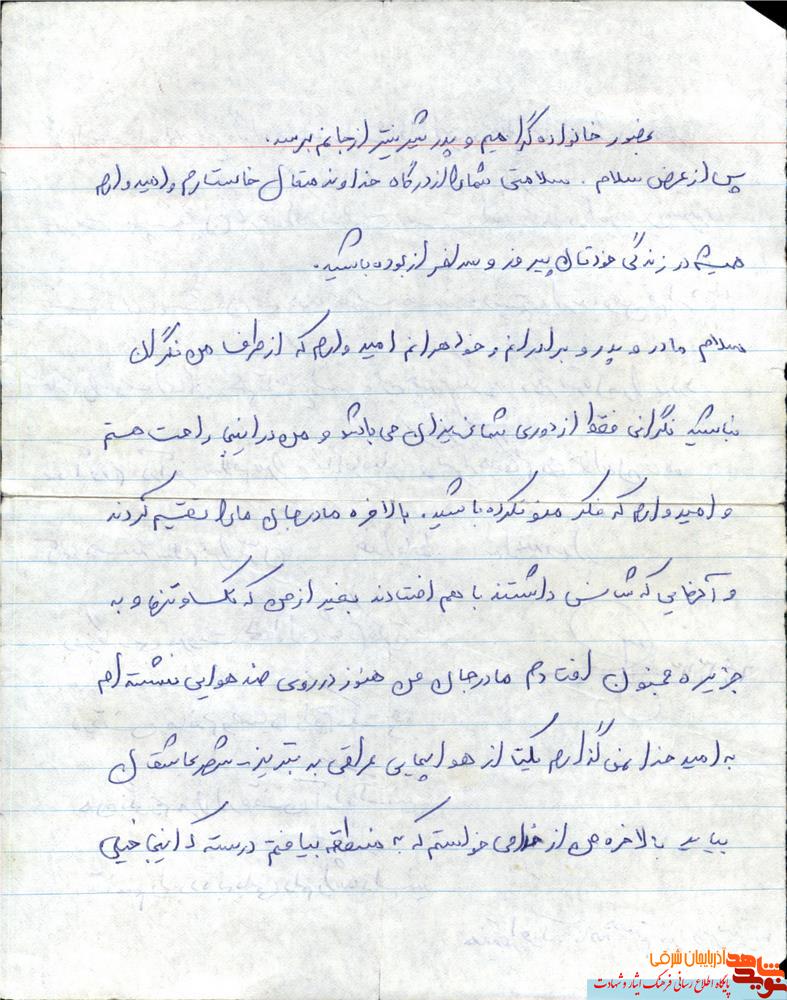 بحضور خانواده گرامیم و پدر شیرینتر از جانم برسد.
پس از عرض سلام . سلامتی شما را از درگاه خداوند متعال خاستارم و امیدوارم
همیشه در زندگی خودتان پیروز و سرافراز بوده باشید.
سلام مادر و پدر و برادرانم و خواهرانم امیدوارم که از طرف من نگران
نباشید نگرانی فقط از دوری شما عزیزان می باشد و من در اینجا راحت هستم
و امیدوارم که فکر منو نکرده باشید. بالاخره مادرجان ما را تقسیم کردند
و آنهایی که شانس داشتند با هم افتادند بغیر از من که تک و تنها و به
جزیره مجنون افتادم مادرجان من هنوز در روی ضد هوایی ننشسته ام
به امید خدا نمی گذارم یکتا از هواپیمایی عراقی به تبریز شهر عاشقان
بیاید بالاخره من از خدا می خواستم که به منطقه بیافتم درسته که اینجا خیلی
نوید شاهد آذربایجان شرقی
پایگاه اطلاع رسانی فرهنگ ایثار و شهادت